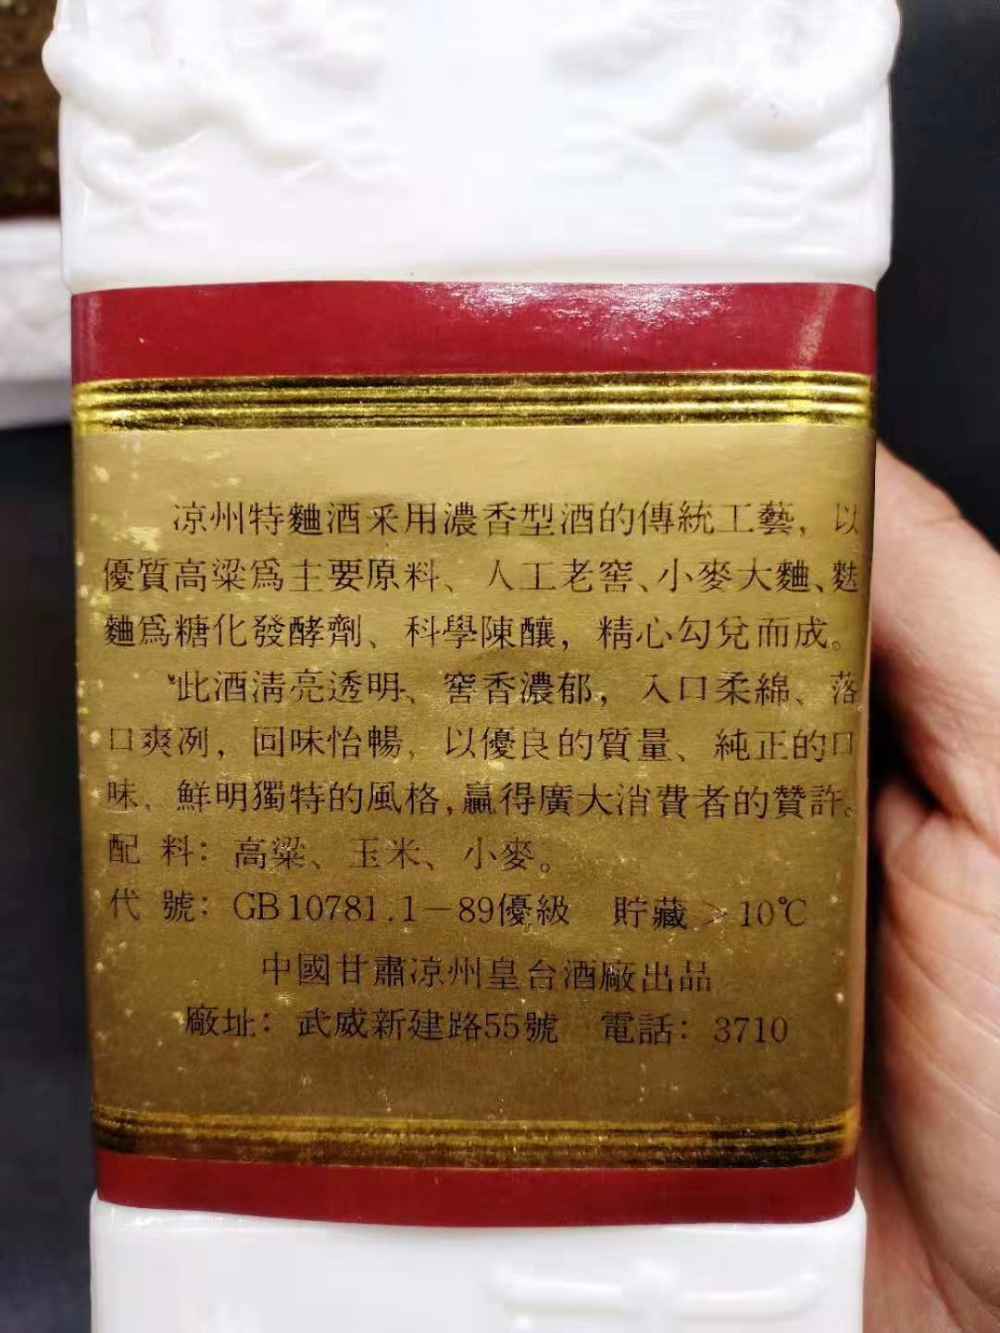 凉州特麯酒采用濃香型酒的傳統工藝，以
優質高粱爲主要原料、人工老窖、小麥大麯、麩
麯爲糖化發酵劑、科學陳釀，精心勾兌而成。
此酒清亮透明、窖香濃郁，入口柔綿、落
口爽冽，回味怡暢，以優良的質量、純正的口
味、鮮明獨特的風格，贏得廣大消費者的贊許。
配 料：高粱、玉米、小麥。
代 號：GB10781.1－89優級 貯藏>10℃
中國甘肅凉州皇台酒廠出品
廠址：武威新建路55號 電話：3710